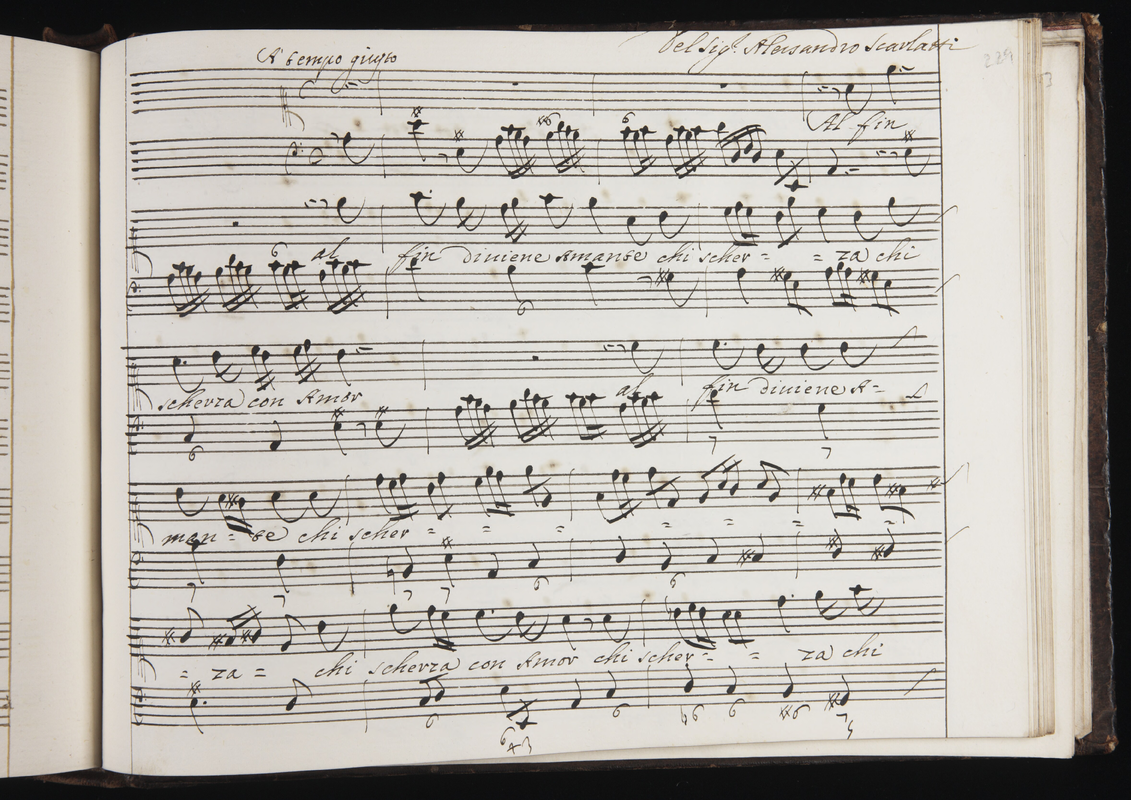 A tempo giusto
Del Sig.r Alessandro Scarlatti
229
Al fin
al fin diviene Amante chi scher = = za chi
scherza con Amor al fin diviene A=
man = te chi scher = = = = = = =
= za = chi scherza con Amor chi scher = = za chi